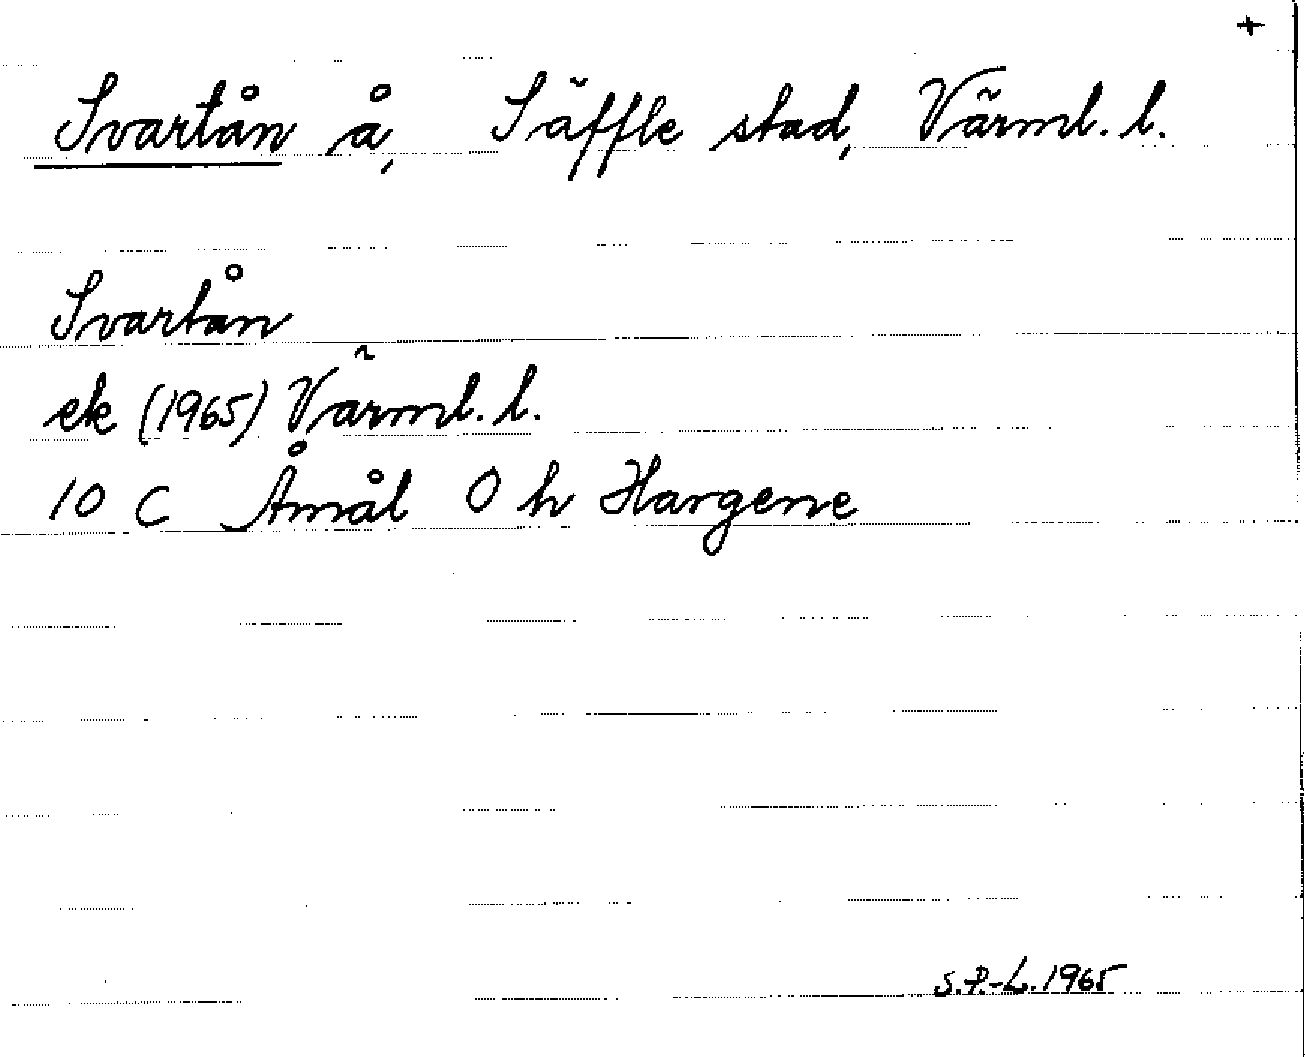 +
Svartån å, Säffle stad, Värml. l.
Svartån
ek (1965) Värml. l.
10 C Åmål 0 h Hargene
S.P.-L. 1965